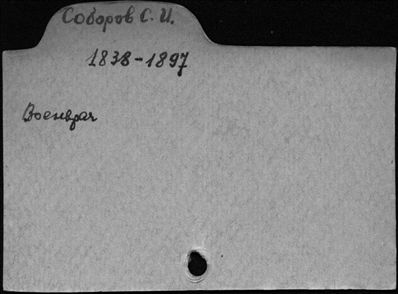 Соборов С. И.
1838-1897
Военврач